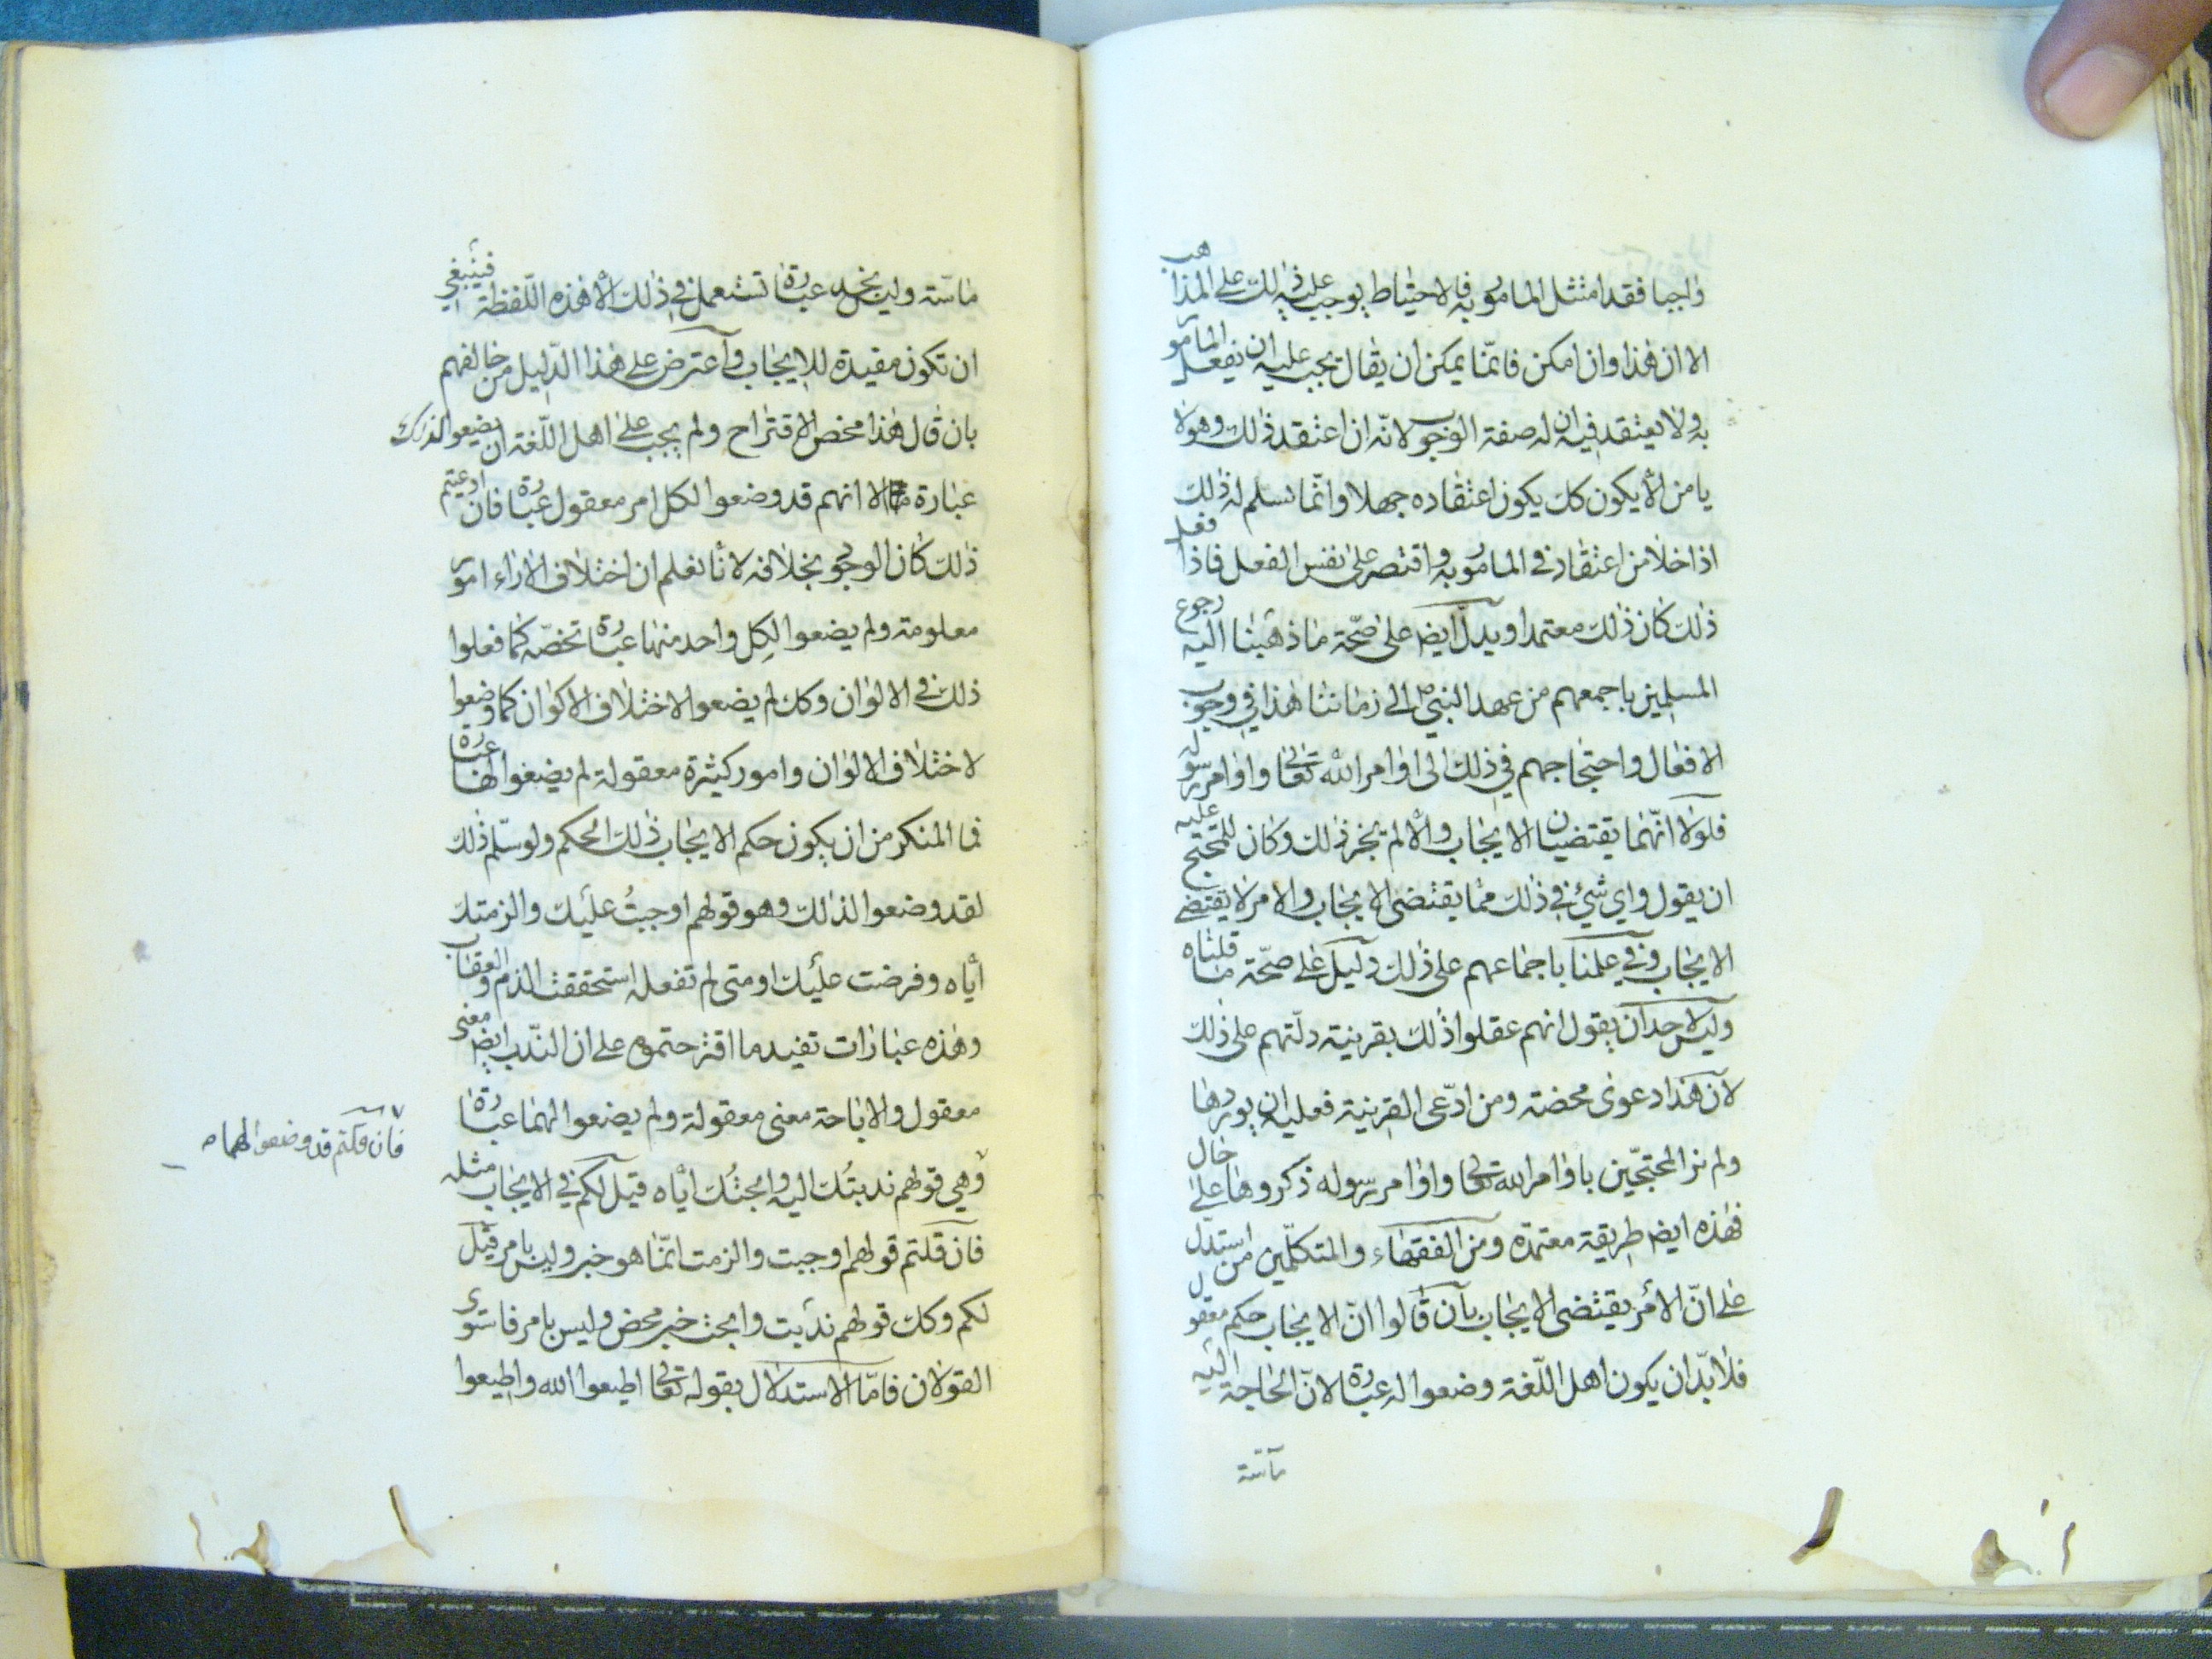 واجبا فقد امتثل المامور به فالاحتياط يوجب عليه ذلك على المذاهب
الا ان هذا وان امكن فانما يمكن ان يقال يجب عليه ان يفعل المامور
به ولا يعتقد فيه ان له صفة الوجوب لانه ان اعتقد ذلك وهو لا
يامن الا يكون كك يكون اعتقاده جهلا وانما نسلم له ذلك
اذا خلا من اعتقاد في المامور به واقتصر على نفس الفعل فاذا فعل
ذلك كان ذلك معتمدا ويدل ايضا على صحة ما ذهبنا اليه رجوع
المسلمين باجمعهم من عهد النبي ص الى زماننا هذا في وجوب
الافعال واحتجاجهم في ذلك الى اوامر الله تعالى واوامر رسوله
فلولا انهما يقتضيان الايجاب والا لم يجز ذلك وكان للمحتج عليه
ان يقول واي شيء في ذلك مما يقتضى الايجاب والامر لا يقتضي
الايجاب وفي علمنا باجماعهم على ذلك دليل على صحة ما قلناه
وليس لاحد ان يقول انهم عقلوا ذلك بقرينة دلتهم على ذلك
لان هذا دعوى محضة ومن ادعى القرينة فعليه ان يوردها
ولم نر المحتجين باوامر الله تعالى واوامر رسوله ذكروها على حال
فهذه ايضا طريقة معتمدة ومن الفقهاء والمتكلمين من استدل
على ان الامر يقتضى الايجاب بان قالوا ان الايجاب حكم معقول
فلا بد ان يكون اهل اللغة وضعوا له عبارة لان الحاجة اليه
ماسة
ماسة وليس نجد عبارة تستعمل في ذلك الا هذه اللفظة فينبغي
ان تكون مفيدة للايجاب واعترض على هذا الدليل من خالفهم
بان قال هذا محض الاقتراح ولم يجب على اهل اللغة ان يضعوا لذلك
عبارة الا انهم قد وضعوا لكل امر معقول عبارة فان ادعيتم
ذلك كان الوجود بخلافه لانا نعلم ان اختلاف الاراء امور
معلومة ولم يضعوا لكل واحد منها عبارة تخصه كما فعلوا
ذلك في الالوان وكك لم يضعوا لاختلاف الاكوان كما وضعوا
لاختلاف الالوان وامور كثيرة معقولة لم يضعوا لها عبارة
فما المنكر من ان يكون حكم الايجاب ذلك الحكم ولو سلم ذلك
لقد وضعوا لذلك وهو قولهم اوجبت عليك والزمتك
اياه وفرضت عليك او متى لم تفعله استحققت الذم والعقاب
وهذه عبارات تفيد ما اقترحتموه على ان الندب ايضا معنى
معقول والاباحة معنى معقولة ولم يضعوا لهما عبارة
فان قلتم قد وضعوا لهما
وهي قولهم ندبتك اليه وابحتك اياه قيل لكم في الايجاب مثله
فان قلتم قولهم اوجبت والزمت انما هو خبر وليس بامر قيل
لكم وكك قولهم ندبت وابحت خبر محض وليس بامر فاستوى
القولان فاما الاستدلال بقوله تعالى اطيعوا الله واطيعوا